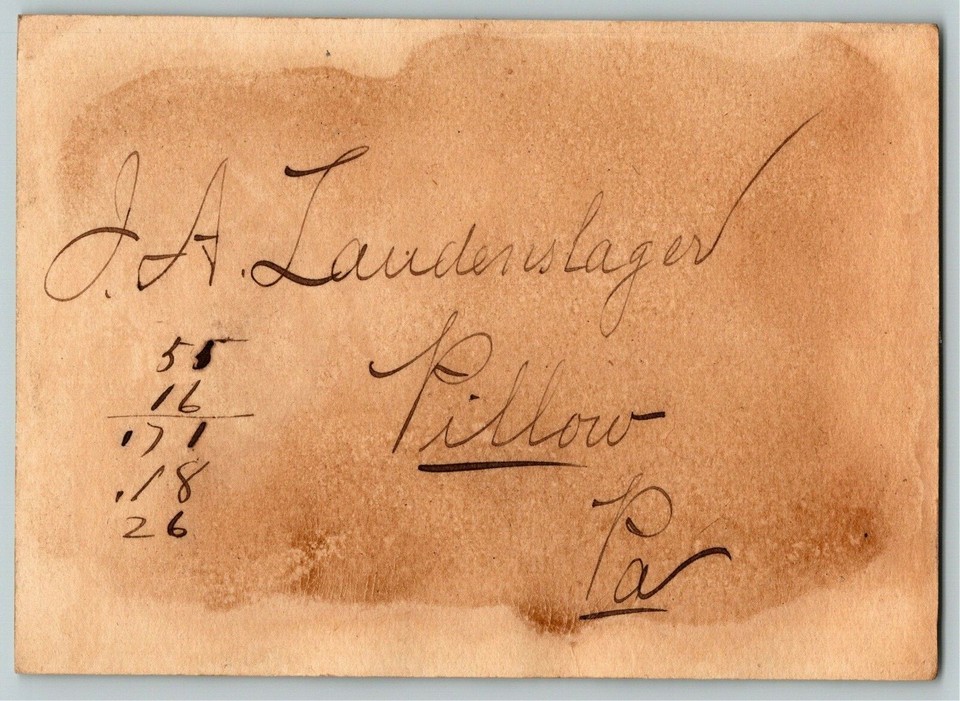 J. A. Laudenslager
Pillow
Pa
55
16
.171
.18
26